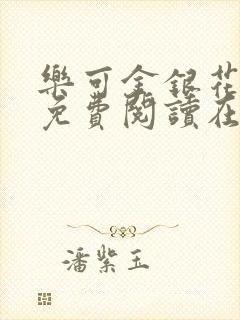 樂可金銀花
免費閱讀在
潘紫玉